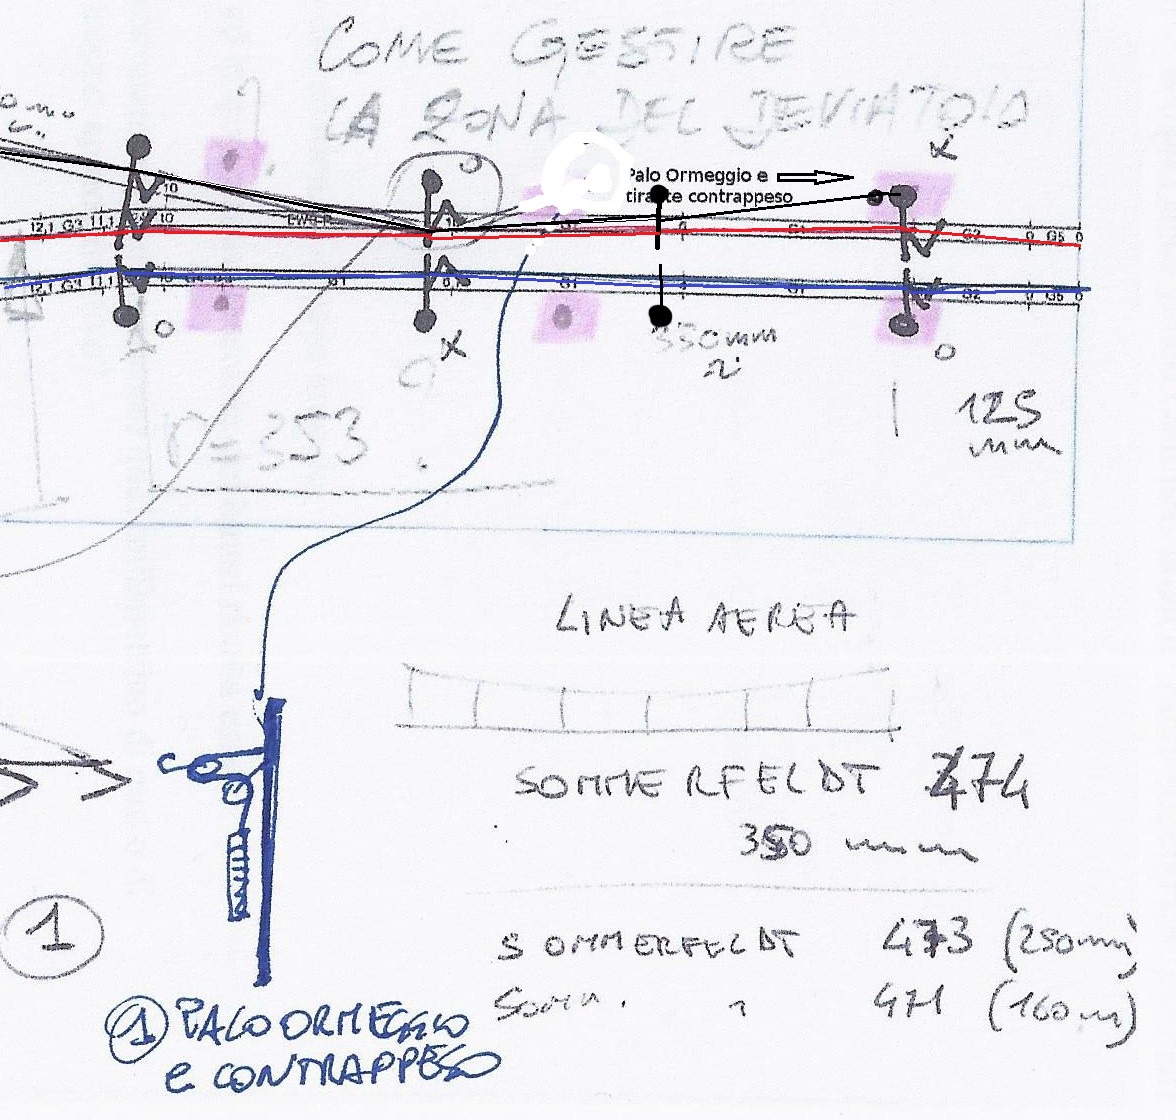 COME GESTIRE
LA ZONA DEL DEVIATOIO
Palo Ormeggio e
tirante contrappeso
X
10
12,1 G3 11,1
10
G1
G1
G2
G5
0
12,1 G3 11,1
G1
G1
G1
G2
G5
0
O
X
350mm
O
125
mm
r=353
LINEA AEREA
SOMMERFELDT 474
350 mm
1
SOMMERFELDT 473 (250mm)
Somm. " 471 (160m)
1 PALO ORMEGGIO
e CONTRAPPESO